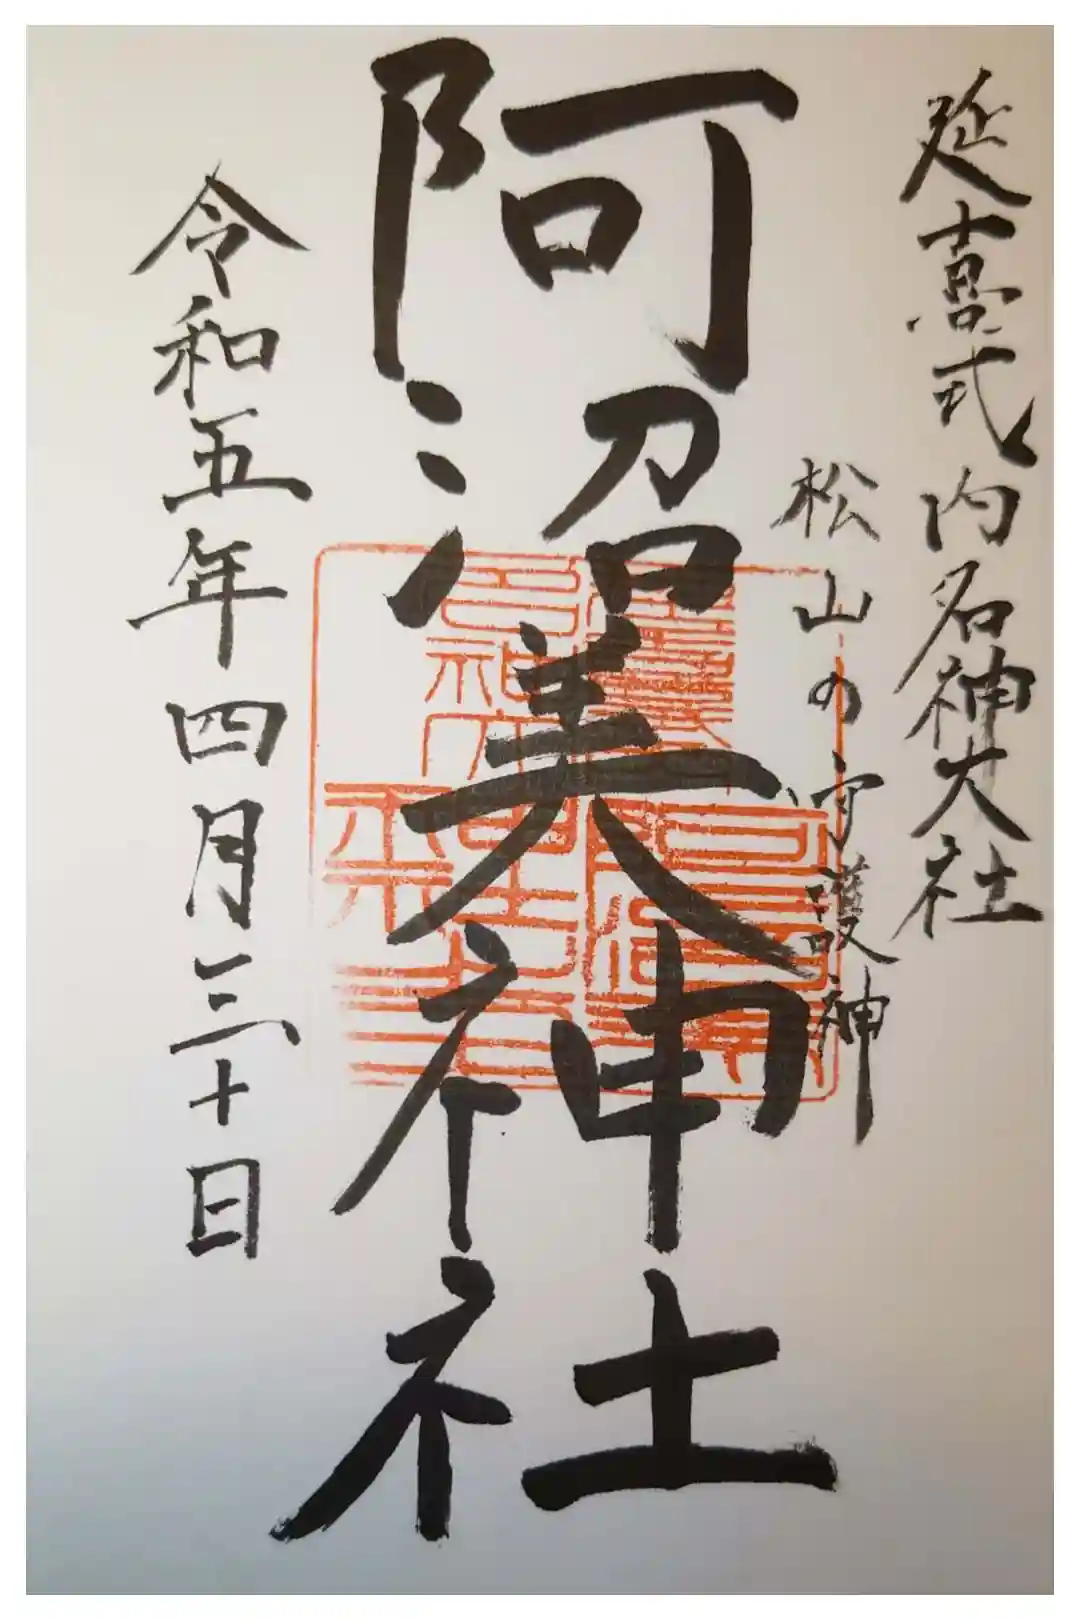 延喜式内名神大社
松山の守護神
阿沼美神社
令和五年四月三十日